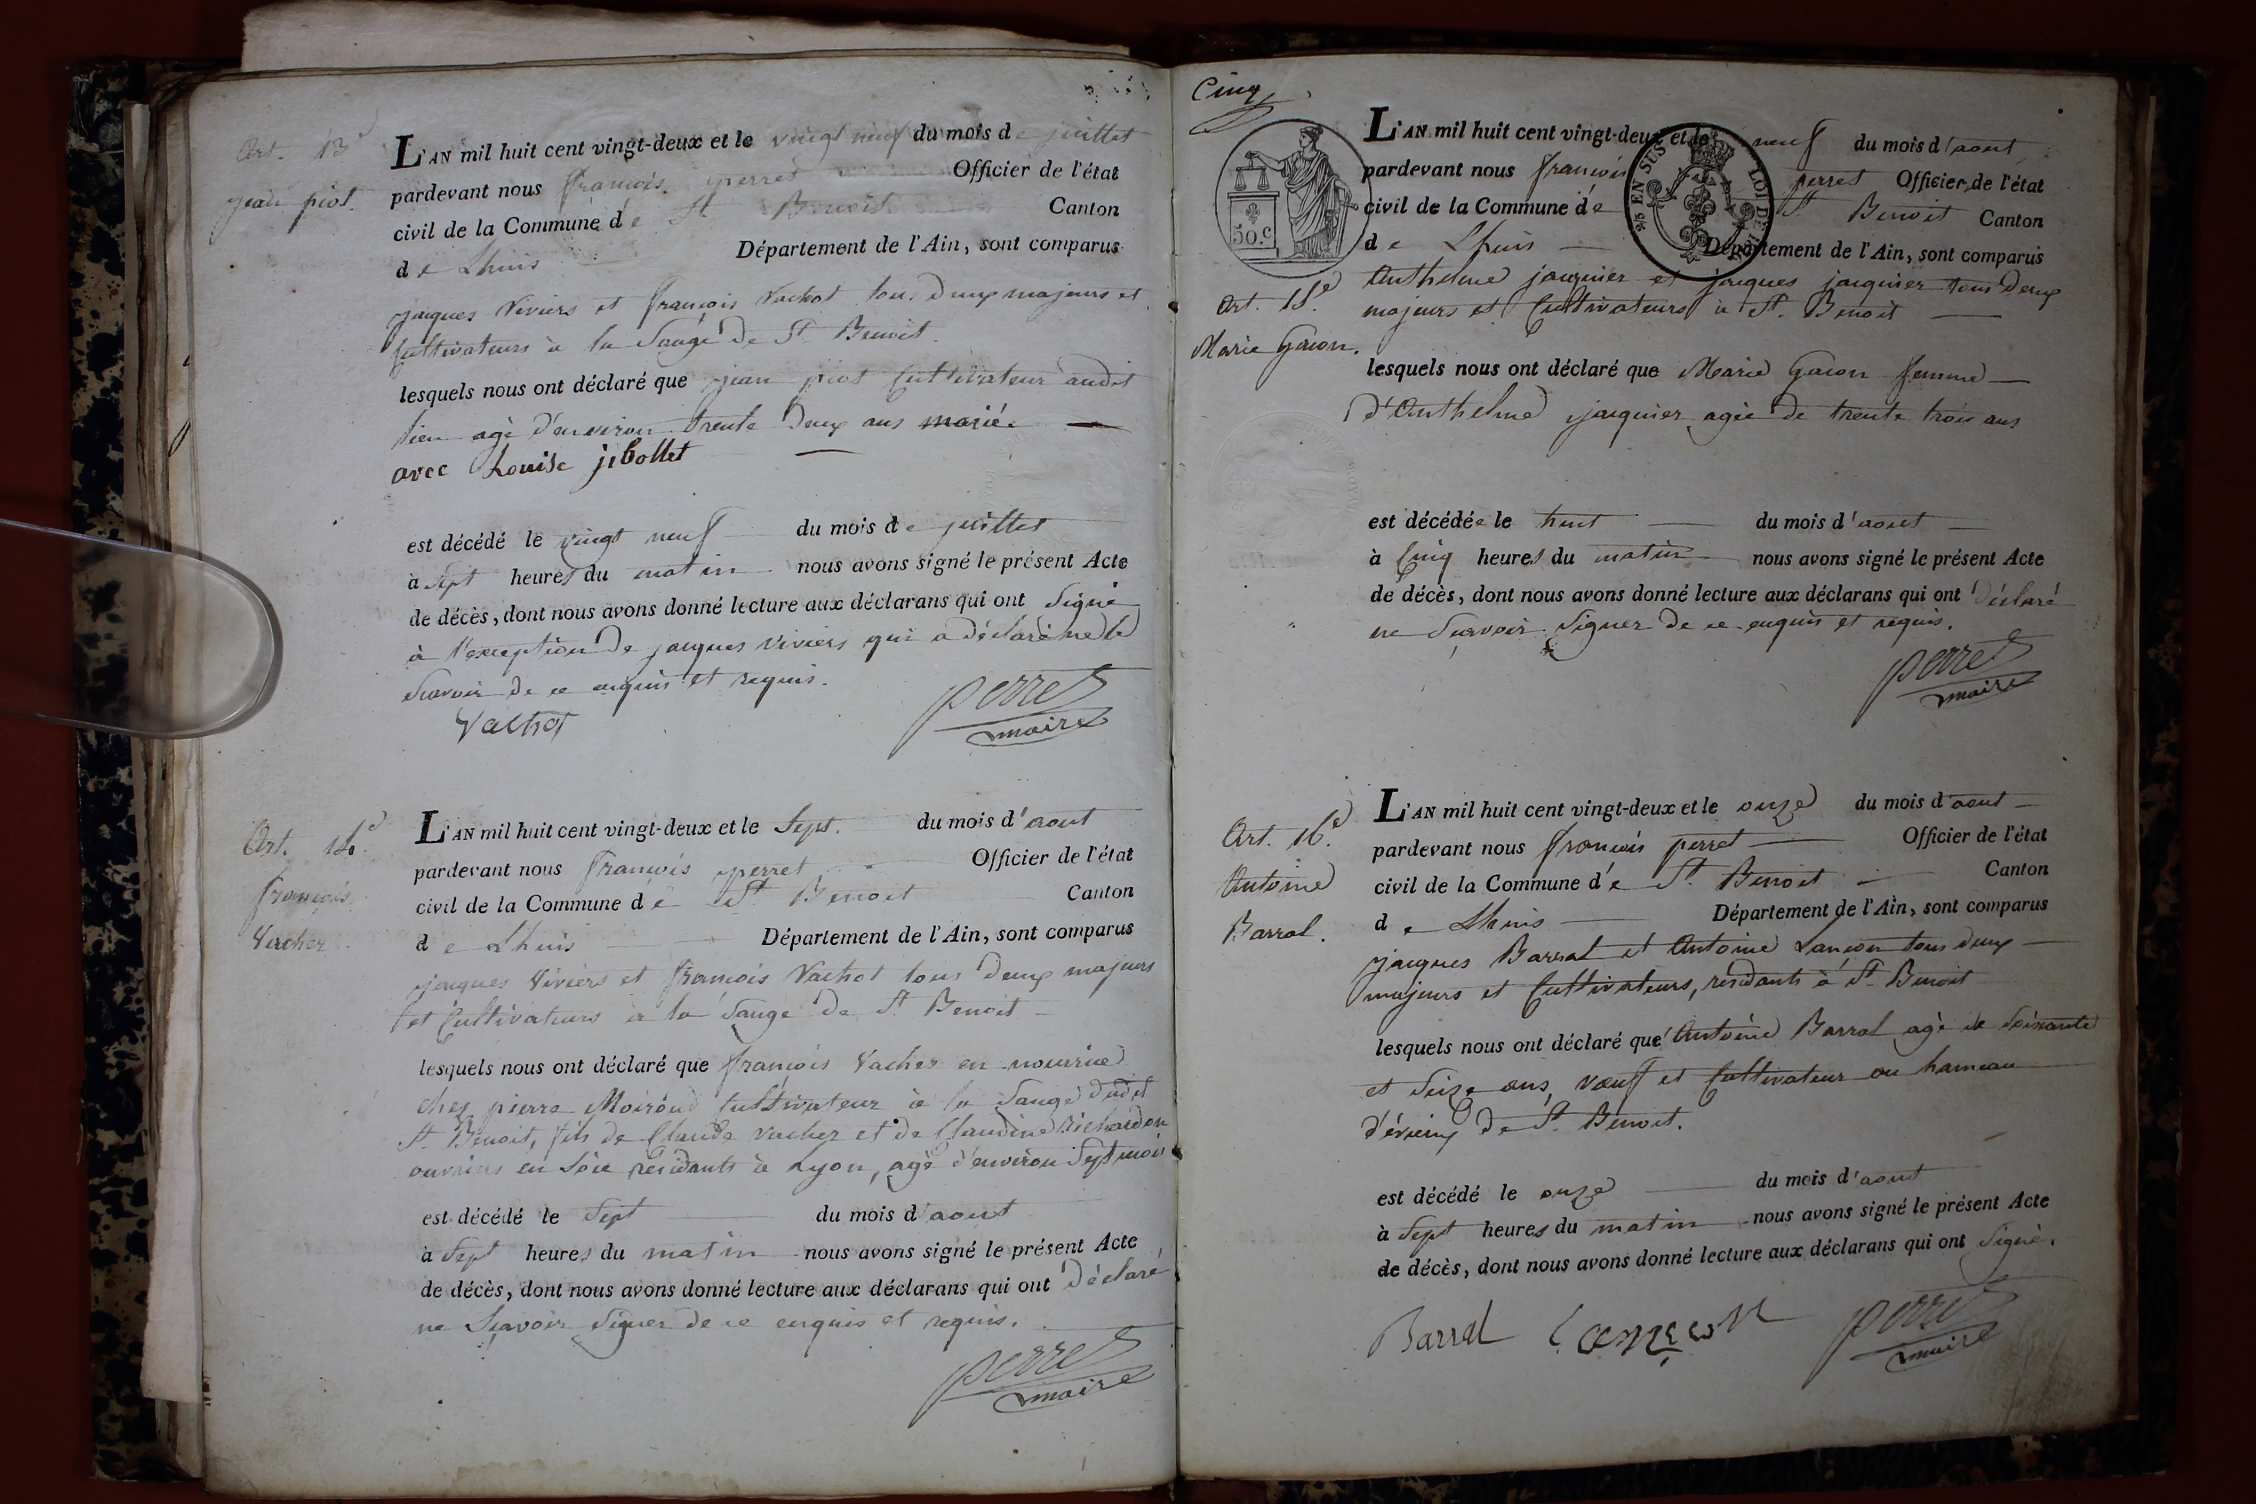 Art. 13e
jean piot.
L'AN mil huit cent vingt-deux et le vingt neuf du mois de juillet
pardevant nous françois perret Officier de l'état
civil de la Commune de St Benoit Canton
de Lhuis Département de l'Ain, sont comparus
jacques Viviers et françois Vachot tous deux majeurs et
Cultivateurs à la Sauge de St Benoit.
lesquels nous ont déclaré que jean piot Cultivateur audit
lieu agé d'environ trente deux ans marié
avec Louise jibollet
est décédé le vingt neuf du mois de juillet
à Sept heures du matin nous avons signé le présent Acte
de décès, dont nous avons donné lecture aux déclarans qui ont Signé
à l'exception de jacques Viviers qui a déclaré ne le
Scavoir de ce enquis et requis.
Vachot perret
maire
Art. 14e
françois
Vacher
L'AN mil huit cent vingt-deux et le Sept. du mois d'aout
pardevant nous françois perret Officier de l'état
civil de la Commune de St Benoit Canton
de Lhuis Département de l'Ain, sont comparus
jacques Viviers et françois Vachot tous deux majeurs
et Cultivateurs à la Sauge de St Benoit
lesquels nous ont déclaré que françois Vacher en nourrice
chez pierre Moiroud Cultivateur à la Sauge dudit
St Benoit, fils de Claude Vacher et de Claudine Richardon
ouvriers en Soie résidants à Lyon, agé d'environ Sept mois
est décédé le Sept du mois d'aout
à Sept heures du matin nous avons signé le présent Acte
de décès, dont nous avons donné lecture aux déclarans qui ont déclaré
ne Sçavoir Signer de ce enquis et requis.
perret
maire
Cinq
50.C
EN SUS
LOI DE
L'AN mil huit cent vingt-deux et le neuf du mois d'aout
pardevant nous françois perret Officier de l'état
civil de la Commune de St Benoit Canton
de Lhuis Département de l'Ain, sont comparus
Art. 15e
Marie Gacon.
Anthelme jacquier et jacques jacquier tous deux
majeurs et Cultivateurs à St. Benoit
lesquels nous ont déclaré que Marie Gacon femme
d'Anthelme jacquier agée de trente trois ans
est décédée le huit du mois d'aout
à Cinq heures du matin nous avons signé le présent Acte
de décès, dont nous avons donné lecture aux déclarans qui ont déclaré
ne Sçavoir Signer de ce enquis et requis.
perret
maire
Art. 16e
Antoine
Barral.
L'AN mil huit cent vingt-deux et le onze du mois d'aout
pardevant nous françois perret Officier de l'état
civil de la Commune de St. Benoit Canton
de Lhuis Département de l'Ain, sont comparus
jacques Barral et Antoine Lançon tous deux
majeurs et Cultivateurs, résidants à St Benoit
lesquels nous ont déclaré que Antoine Barral agé de Soixante
et Seize ans, Vœuf et Cultivateur au hameau
d'évieux de St. Benoit.
est décédé le onze du mois d'aout
à Sept heures du matin nous avons signé le présent Acte
de décès, dont nous avons donné lecture aux déclarans qui ont Signé.
Barral Lançon perret
maire